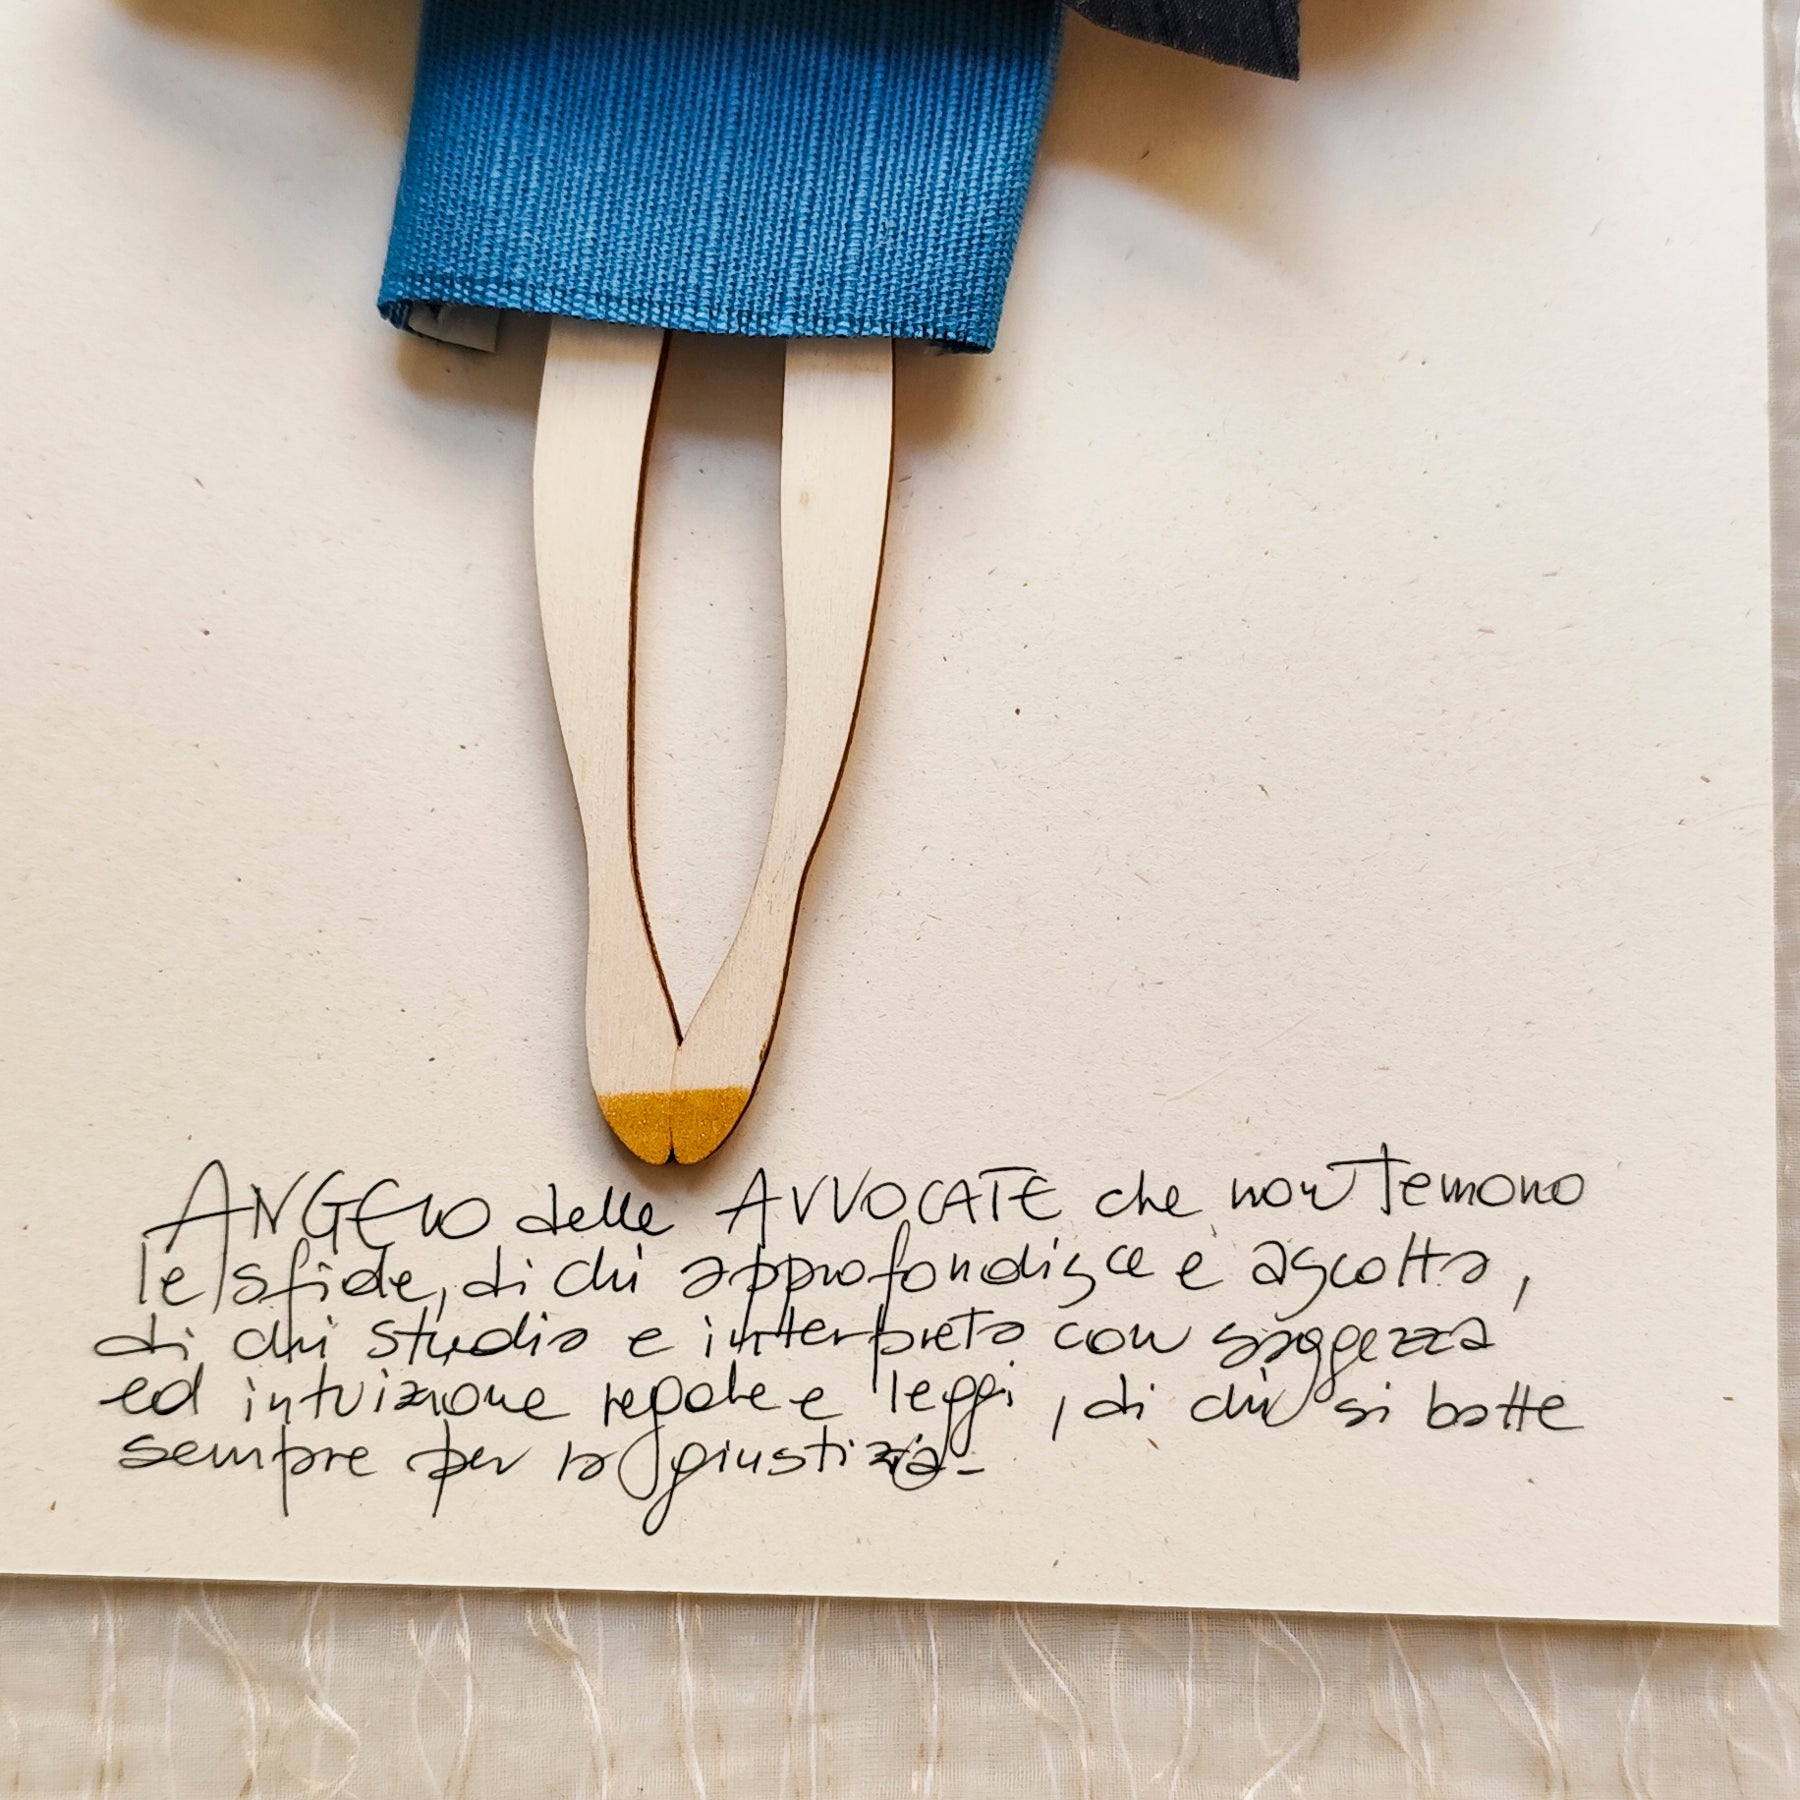 ANGELO delle AVVOCATE che non temono
le sfide, di chi approfondisce e ascolta,
di chi studia e interpreta con saggezza
ed intuizione regole e leggi, di chi si batte
sempre per la giustizia-